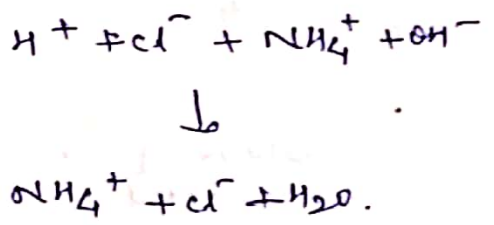 H⁺ + Cl⁻ + NH₄⁺ + OH⁻
↓
NH₄⁺ + Cl⁻ + H₂O.